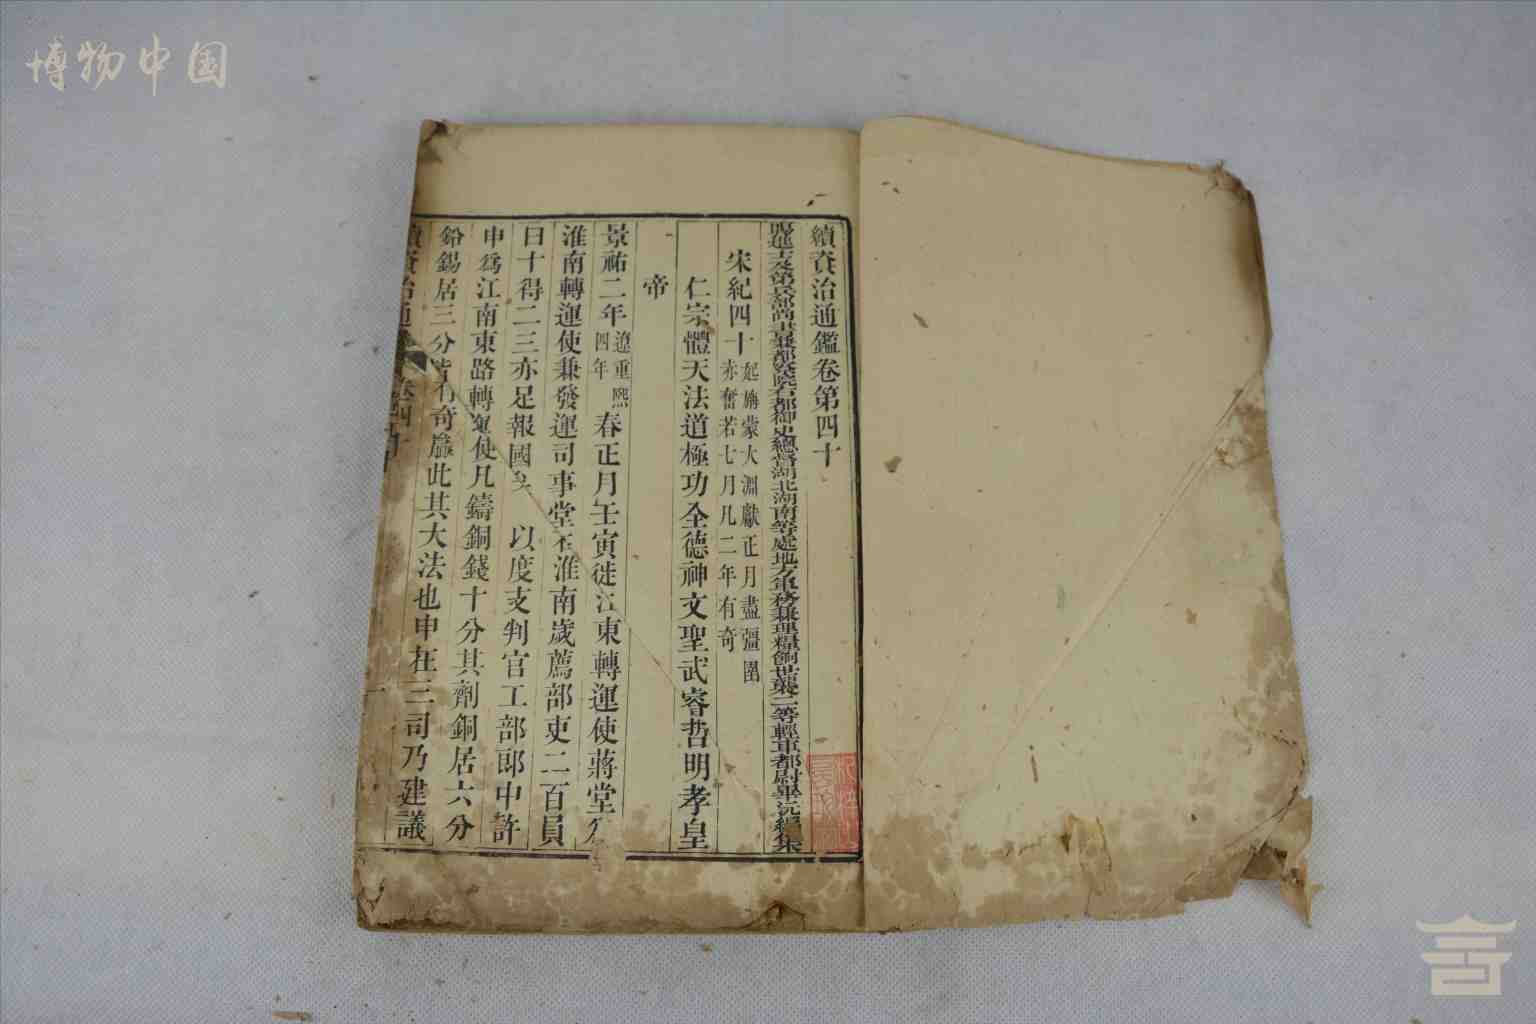 博物中国
續資治通鑑卷第四十
賜進士及第兵部尚書兼都察院右都御史總督湖北湖南等處地方軍務兼理糧餉世襲二等輕車都尉畢沅編集
宋紀四十 起旃蒙大淵獻正月盡彊圉
赤奮若七月凡二年有奇
仁宗體天法道極功全德神文聖武睿哲明孝皇
帝
景祐二年 遼重熙
四年 春正月壬寅徙江東轉運使蔣堂爲
淮南轉運使兼發運司事堂在淮南歲薦部吏二百員
曰十得二三亦足報國矣 以度支判官工部郎中許
申爲江南東路轉運使凡鑄銅錢十分其劑銅居六分
鉛錫居三分皆有奇羸此其大法也申在三司乃建議
續資治通 卷四十 一